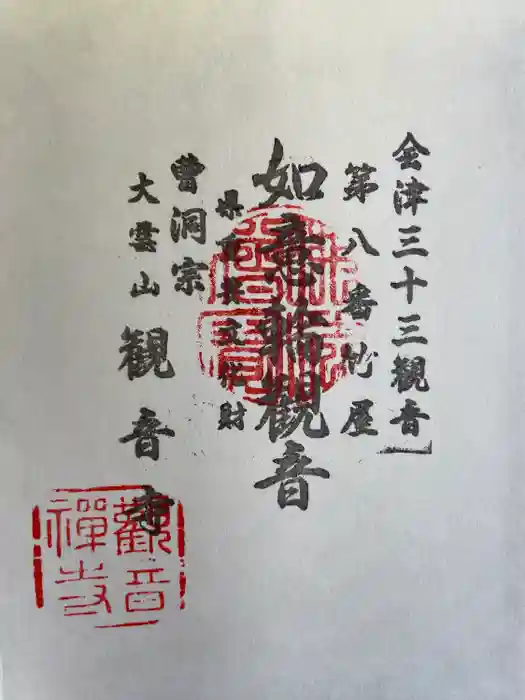 会津三十三観音
第八番竹屋
如意輪観音
県重要文化財
曹洞宗
大雲山観音寺
觀音
禪寺